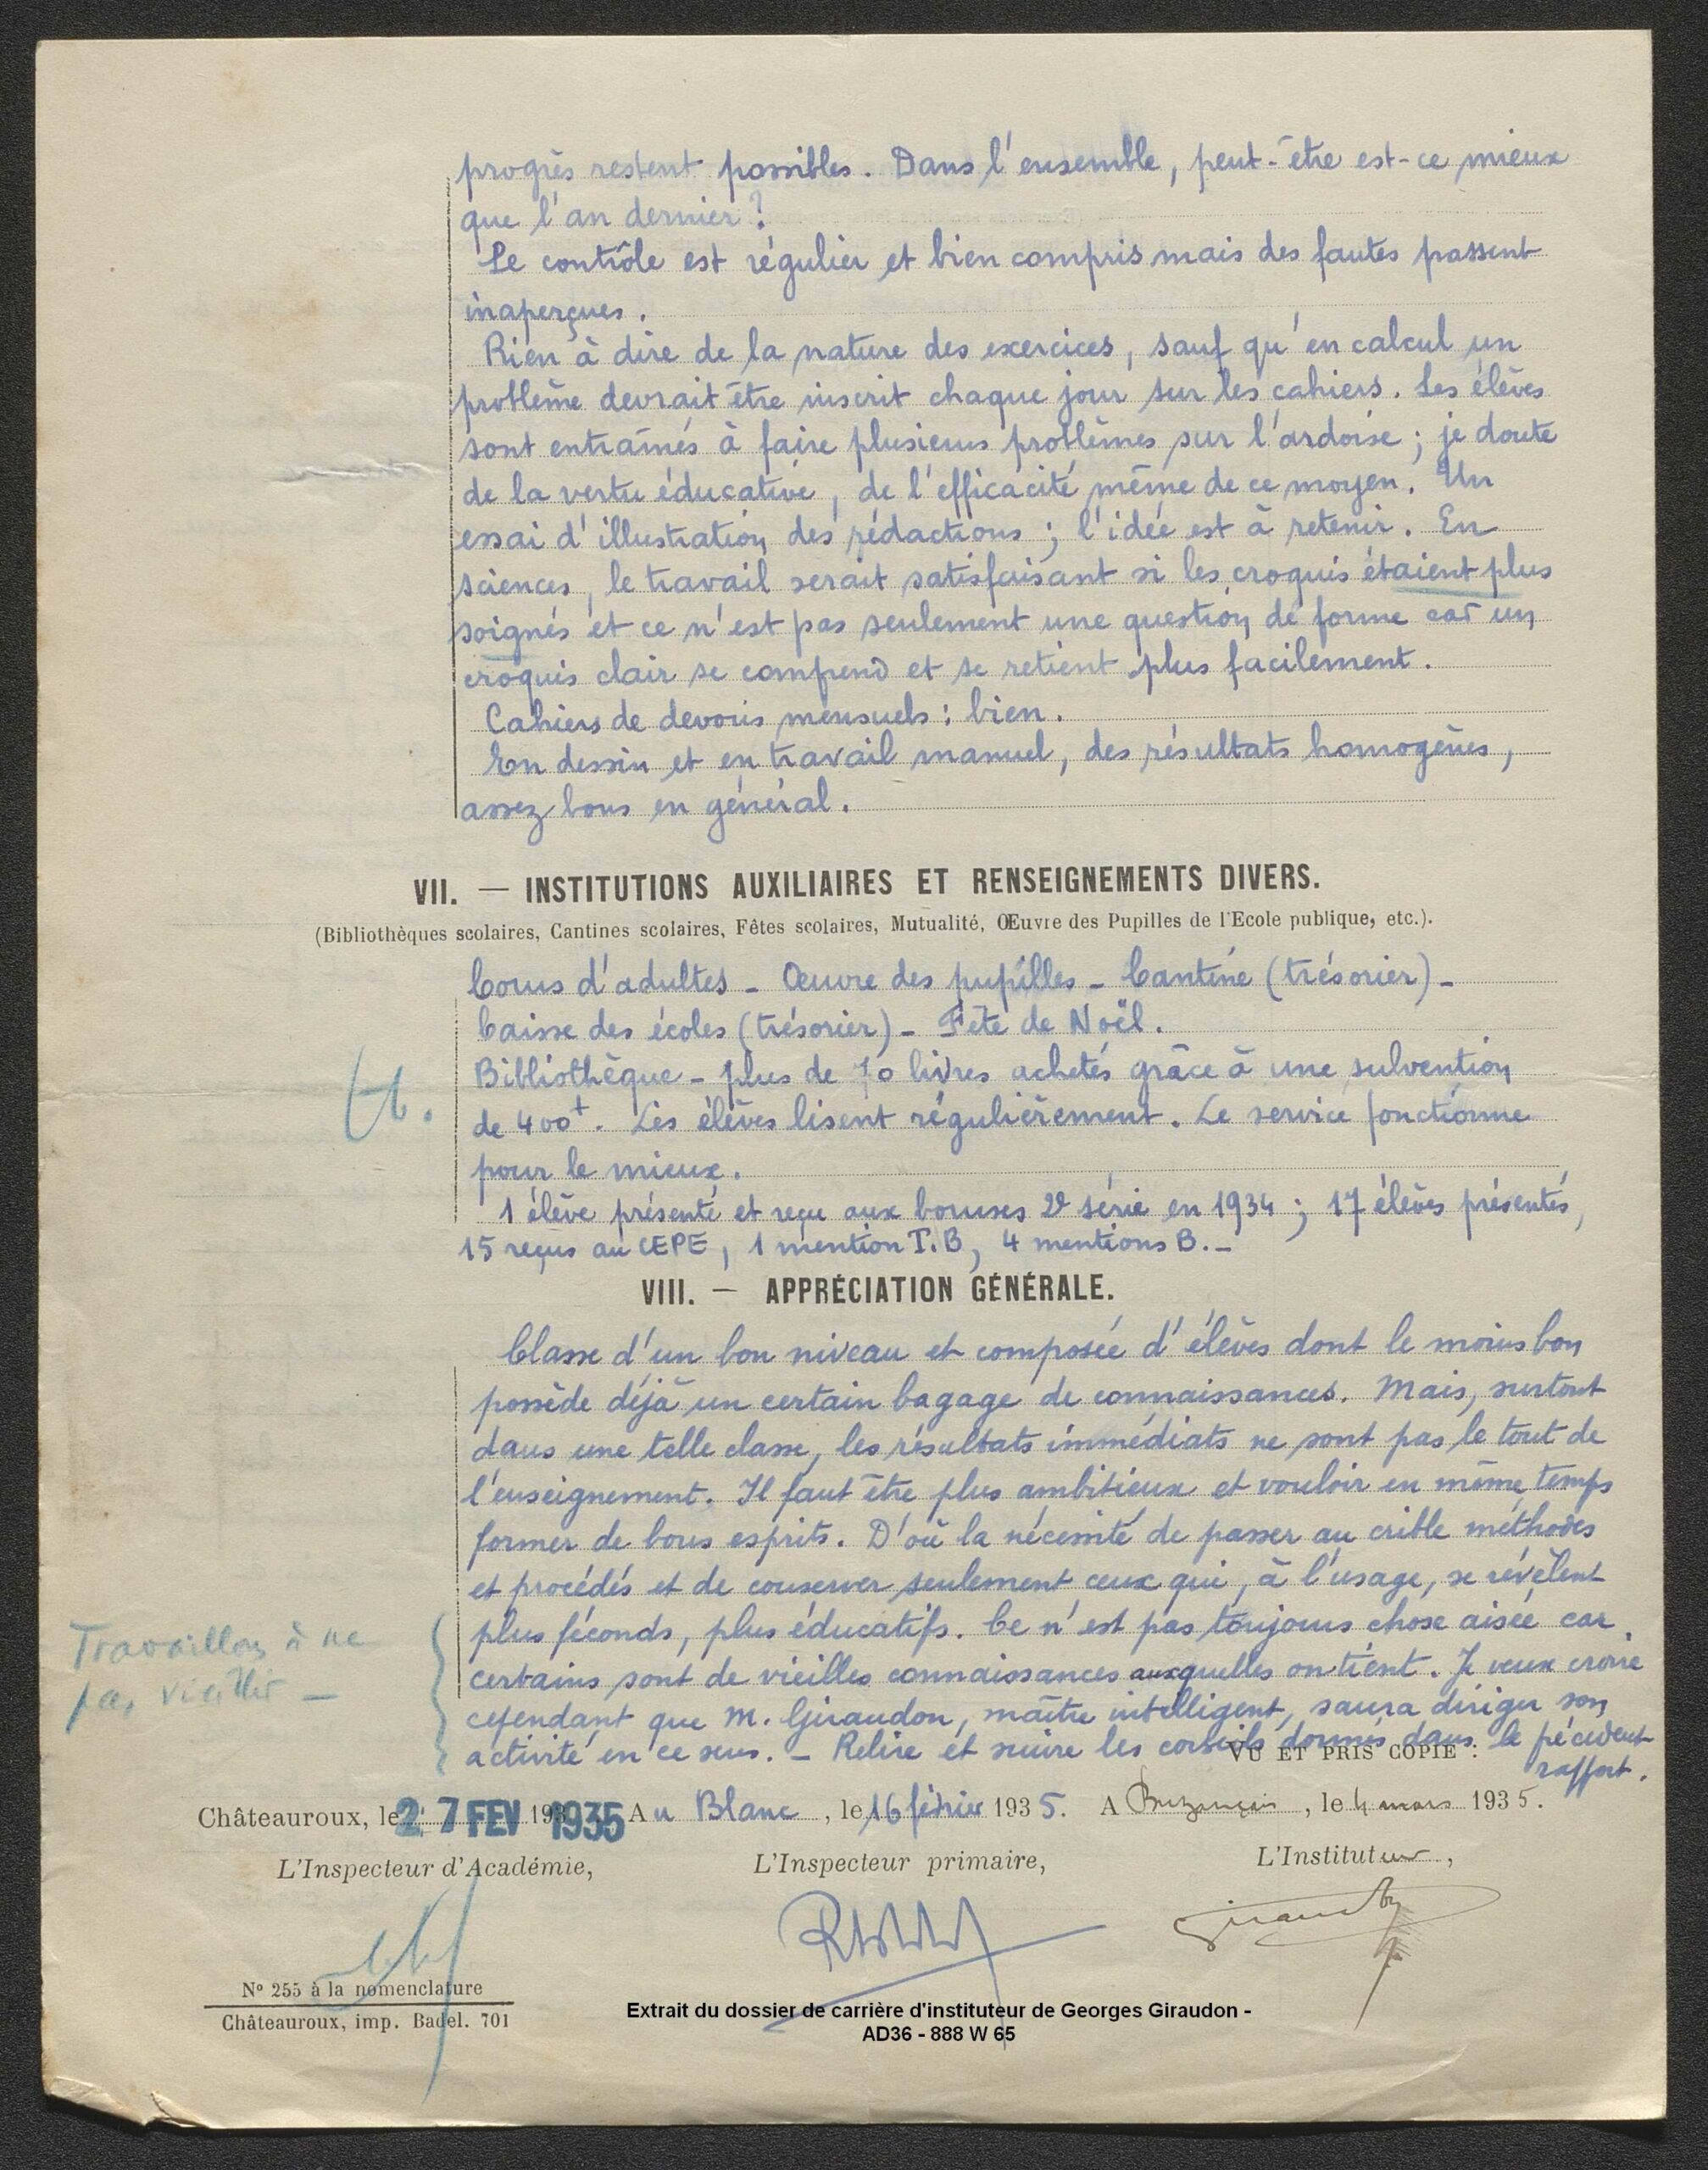 progrès restent possibles. Dans l'ensemble, peut-être est-ce mieux
que l'an dernier ?
Le contrôle est régulier et bien compris mais des fautes passent
inaperçues.
Rien à dire de la nature des exercices, sauf qu'en calcul un
problème devrait être inscrit chaque jour sur les cahiers. Les élèves
sont entraînés à faire plusieurs problèmes sur l'ardoise ; je doute
de la vertu éducative, de l'efficacité même de ce moyen. Un
essai d'illustration des rédactions ; l'idée est à retenir. En
sciences, le travail serait satisfaisant si les croquis étaient plus
soignés et ce n'est pas seulement une question de forme car un
croquis clair se compend et se retient plus facilement.
Cahiers de devoirs mensuels : bien.
En dessin et en travail manuel, des résultats homogènes,
assez bons en général.
VII. — INSTITUTIONS AUXILIAIRES ET RENSEIGNEMENTS DIVERS.
(Bibliothèques scolaires, Cantines scolaires, Fêtes scolaires, Mutualité, Œuvre des Pupilles de l'Ecole publique, etc.).
Cours d'adultes - Œuvre des pupilles - Cantine (trésorier) -
Caisse des écoles (trésorier) - Fête de Noël.
Bibliothèque - plus de 70 livres achetés grâce à une subvention
de 400f. Les élèves lisent régulièrement. Le service fonctionne
pour le mieux.
1 élève présenté et reçu aux bourses 2e série en 1934 ; 17 élèves présentés,
15 reçus au CEPE, 1 mention T.B, 4 mentions B. -
VIII. — APPRÉCIATION GÉNÉRALE.
Classe d'un bon niveau et composée d'élèves dont le moins bon
possède déjà un certain bagage de connaissances. Mais, surtout
dans une telle classe, les résultats immédiats ne sont pas le tout de
l'enseignement. Il faut être plus ambitieux et vouloir en même temps
former de bons esprits. D'où la nécessité de passer au crible méthodes
et procédés et de conserver seulement ceux qui, à l'usage, se révèlent
plus féconds, plus éducatifs. Ce n'est pas toujours chose aisée car
certains sont de vieilles connaissances auxquelles on tient. Je veux croire
cependant que M. Giraudon, maître intelligent, saura diriger son
activité en ce sens. - Relire et suivre les conseils donnés dans le pécedent
rapport.
Travaillons à ne
pas vieillir -
VU ET PRIS COPIE :
Châteauroux, le 27 FEV 193 1935 Au Blanc, le 16 février 1935. A Buzançais, le 4 mars 1935.
L'Inspecteur d'Académie, L'Inspecteur primaire, L'Instituteur,
Giraudon
N° 255 à la nomenclature
Châteauroux, imp. Badel. 701
Extrait du dossier de carrière d'instituteur de Georges Giraudon -
AD36 - 888 W 65